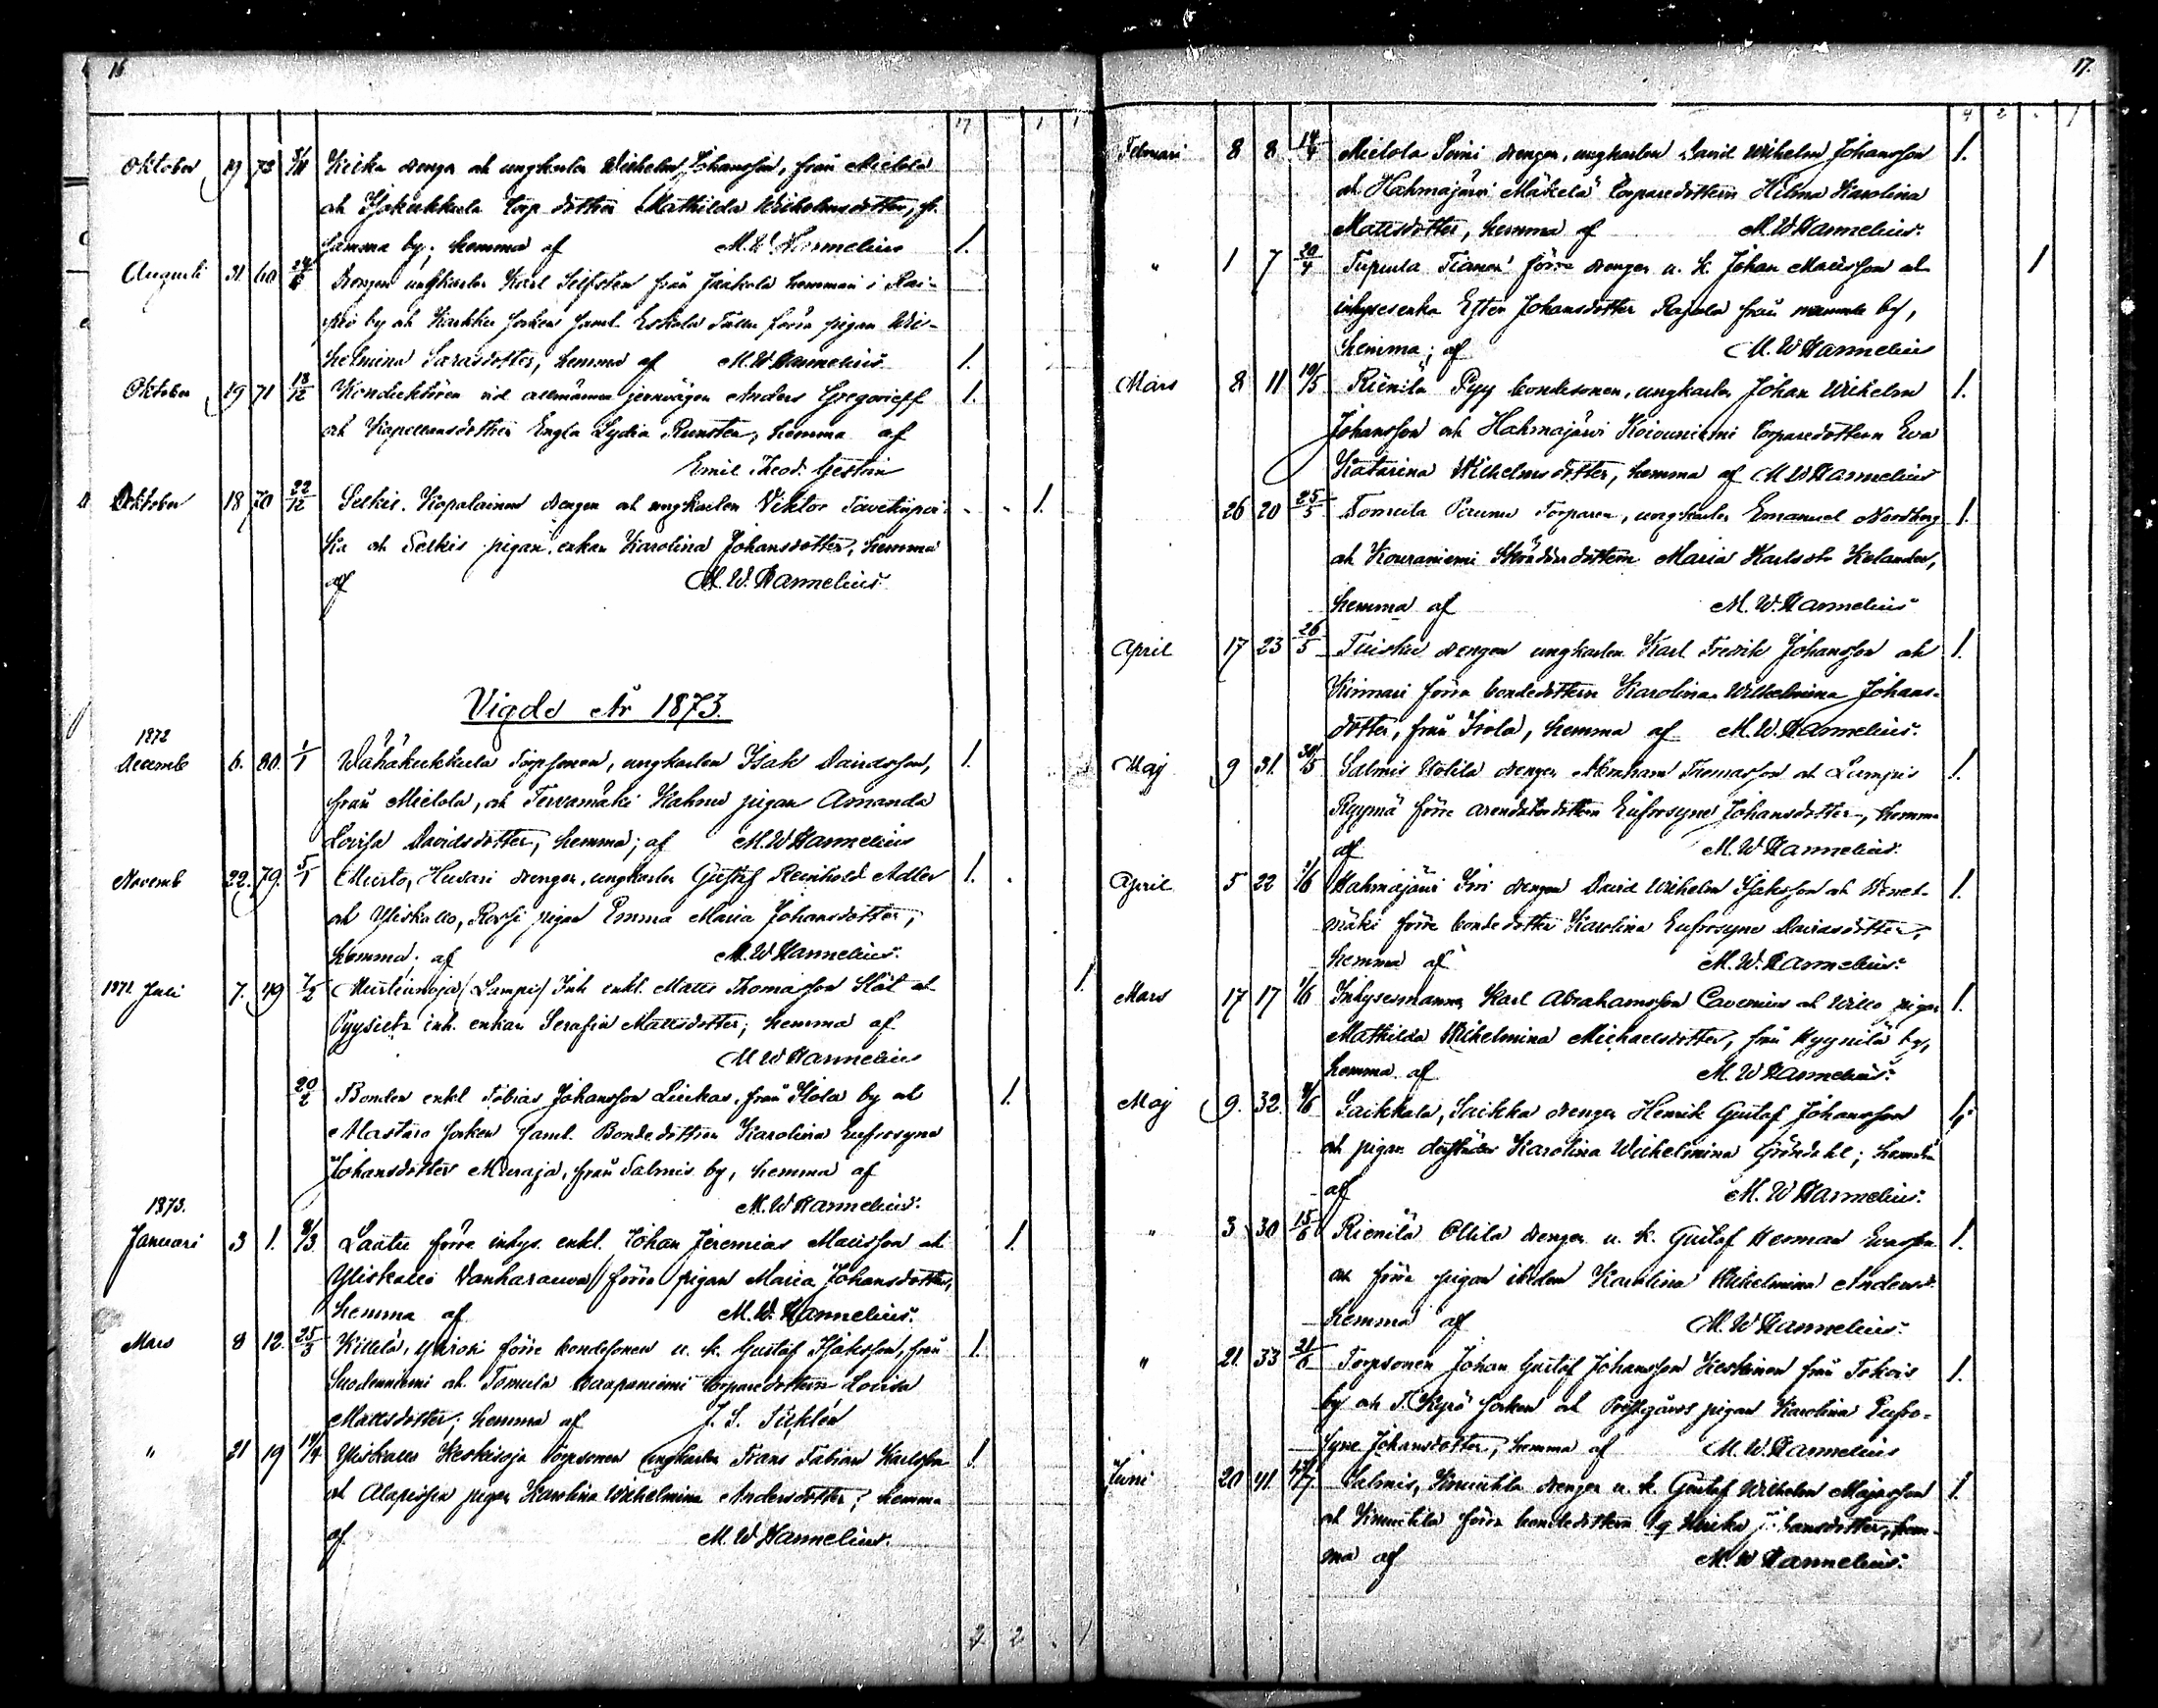 16
17 1 1
Oktober 19 73 Keika drengen och ungkarlen Wilhelm Johansson, från Mielola
och Isokukkula torp. dottern Mathilda Wilhelmsdotter, fr.
samma by; hemma af M. W. Hannelius 1.
Augusti 31 60 Drengen ungkarlen Karl Selfsten från Jaakola hemman i
by och Karkku socken saml. pigan Wil-
helmina Saradotter, hemma af M. W. Hannelius 1.
Oktober 19 71 18/12 Konduktören vid allmänna jernvägen Anders Gregorieff 1.
och Kapellansdottern Engla Lydia hemma af
Emil Theod. Gestrin
Oktober 18 70 22/12 Selkis. Kopalainen drengen och ungkarlen Viktor 1.
och Selkis pigan, enkan Karolina Johansdotter, hemma
af M. W. Hannelius
Vigde År 1873.
1872
Decemb 6. 80. 1/1 Wähäkukkula Torpsonen, ungkarlen Isak Davidsson, 1.
från Mielola, och Tervamäki pigan Amanda
Lovisa Davidsdotter, hemma; af M. W Hannelius
Novemb 22. 79. 5/1 Murto, Huvari drengen, ungkarlen Gustaf Reinhold Adler 1.
och Yliskallo, pigan Emma Maria Johansdotter,
hemma; af M. W Hannelius.
1872 Juli 7. 49 7/2 /Lampis/ Inh. enkl. Matts Thomasson Slät och 1.
inh. enkan Serafia Mattsdotter; hemma af
M W Hannelius
20/2 Bonden enkl Tobias Johansson Liukas, från Isola by och 1.
Mastura socken saml. Bondedottren Karolina Eufrosyne
Johansdotter Muraja, från Salmis by, hemma af
M. W Hannelius.
1873.
Januari 3 1. 8/3 Laatu förre inhys. enkl. Johan Jeremias Mattsson och 1.
Yliskallo förra pigan Maria Johansdotter,
hemma af M. W. Hannelius.
Mars 8 12. 25/3 Killilä, förre bondesonen u. k. Gustaf Isaksson, från 1.
Suodenniemi och Tomula Haapaniemi torparedottern Lovisa
Mattsdotter; hemma af J. S. Ticklén
" 21 19 14/4 Yliskallo Keskioja Torpsonen ungkarlen Frans Fabian Karlsson 1.
och pigan Karolina Wilhelmina Andersdotter; hemma
af M. W Hannelius.
2 2 . 1
17.
4 2 . 1
Februari 8 8 14/4 Mielola Soini drengen, ungkarlen David Wilhelm Johansson 1.
och Hahmajärvi Mäkelä torparedottern Hilma Karolina
Mattsdotter, hemma af M. W Hannelius.
" 1 7 20/4 Tupurla förre drengen u. k. Johan Mattsson och 1
inhysesenka Ester Johansdotter Rajala från by,
hemma; af M. W Hannelius
Mars 8 11 10/5 Riienilä Pyy bondesonen, ungkarlen Johan Wilhelm 1.
Johansson och Hahmajärvi Koivuniemi torparedottern Eva
Katarina Wilhelmsdotter, hemma af M W Hannelius
26 20 25/5 Tomula Torparen, ungkarlen Emanuel Nordberg 1.
och Kouraniemi dottern Maria Karlsdtr Kelander,
hemma af M. W. Hannelius
April 17 23 26/5 Tuisku drengen ungkarlen Karl Fredrik Johansson och 1.
förra bondedottern Karolina Wilhelmina Johans-
dotter, från Isola, hemma af M. W. Hannelius.
Maj 9 31. 30/5 Salmis Uotila drengen Abraham Thomasson och Lampis 1.
Ryymä förre dottern Eufrosyne Johansdotter, hemma
af M. W Hannelius.
April 5 22 1/6 Hahmajärvi drengen David Wilhelm Isaksson och
mäki förre bondedotter Karolina Eufrosyne Davidsdotter, 1.
hemma af M. W. Hannelius.
Mars 17 17 1/6 Inhysesmannen Karl Abrahamsson Cavenius och pigan 1.
Mathilda Wilhelmina Michaelsdotter, från Kyynilä by,
hemma af M. W Hannelius.
Maj 9. 32. Saikkala, Saikka drengen Henrik Gustaf Johansson 1.
och pigan derstädes Karolina Wilhelmina Gröndahl; hemma
af M. W Hannelius.
" 3 30 15/6 Riienilä Ollila drengen u. k. Gustaf Herman Evasson 1.
och förre pigan ibidem Karolina Wilhelmina Andersd.
hemma af M. W Hannelius.
" 21. 33 21/6 Torpsonen Johan Gustaf Johansson Keskinen från Tokois 1.
by och T. Kyrö socken och Prestgårds pigan Karolina Eufro-
syne Johansdotter, hemma af M. W. Hannelius
Juni 20 41. Salmis, Knuutila drengen u. k. Gustaf Wilhelm Majasson 1.
och Knuutila förra bondedottern Ulrika Johansdotter, hem-
ma af M. W Hannelius.